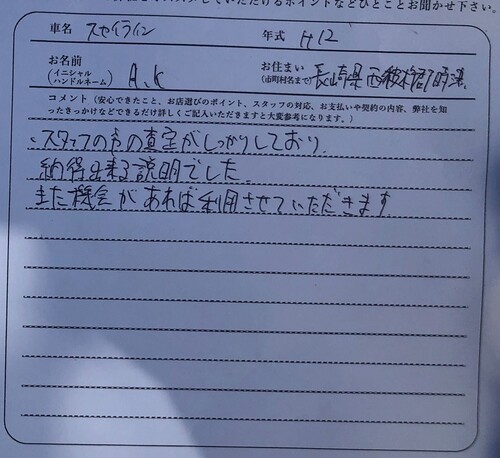 しているただけるポイントなどひとことお聞かせ下さい。
車名 スカイライン 年式 H12
お名前 (イニシャル ハンドルネーム) A.K お住まい (市町村名まで) 長崎県西彼杵郡時津
コメント（安心できたこと、お店選びのポイント、スタッフの対応、お支払いや契約の内容、弊社を知
ったきっかけなどできるだけ詳しくご記入いただきますと大変参考になります。）
・スタッフの方の査定がしっかりしており、
納得出来る説明でした。
また機会があれば利用させていただきます